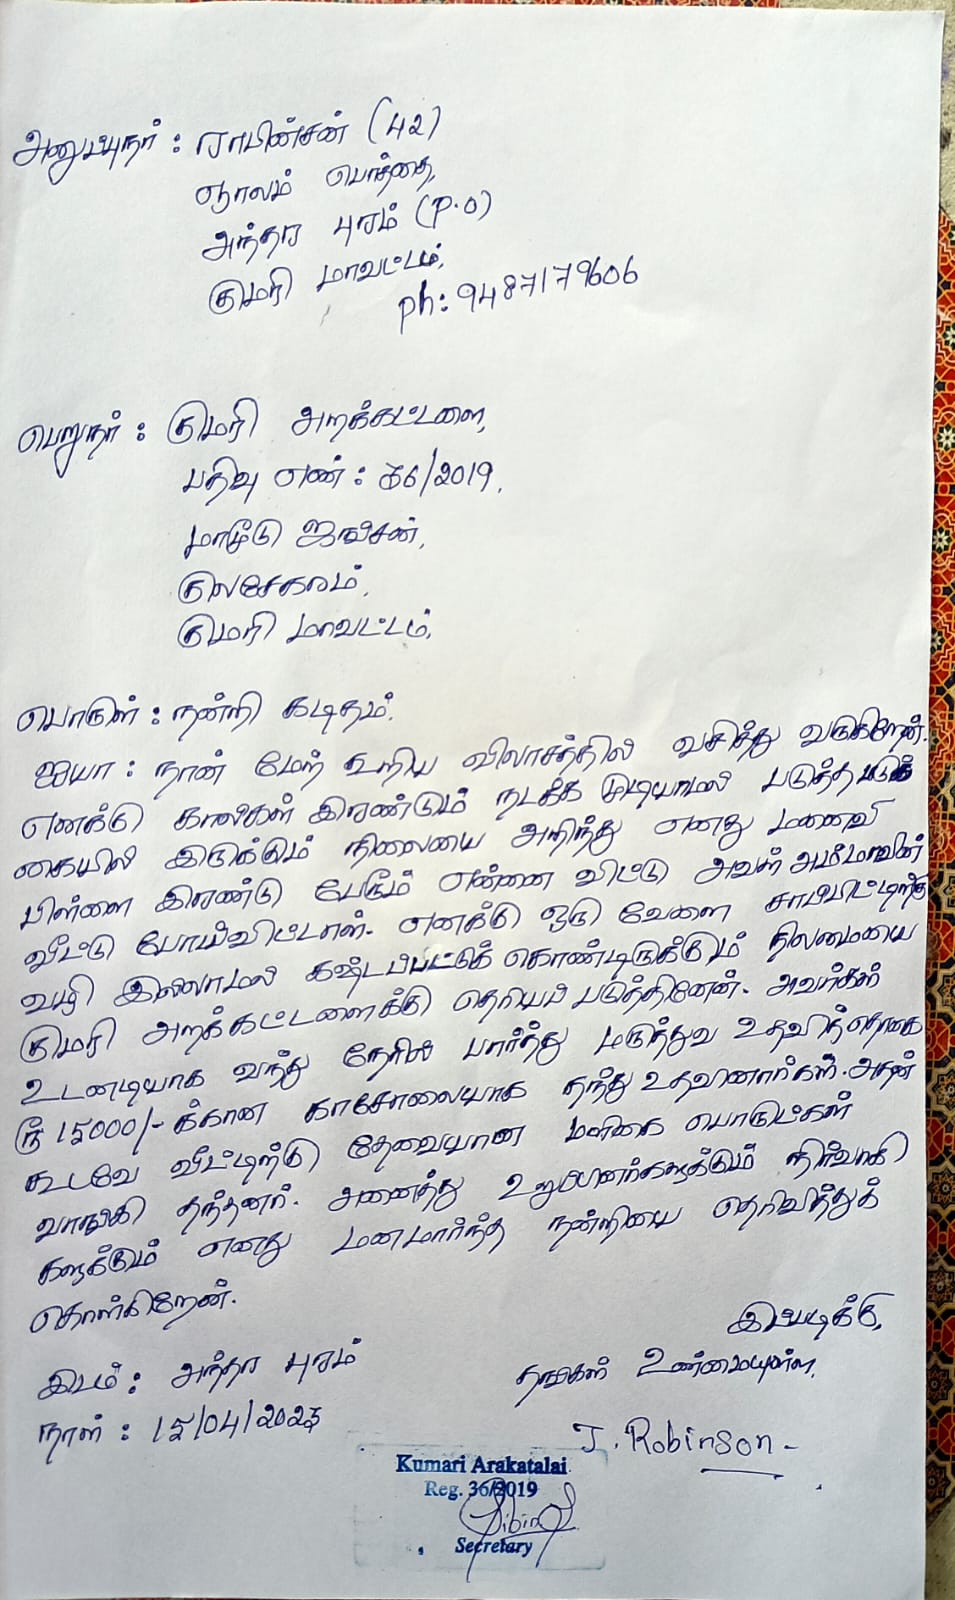 அனுப்புநர் : ராபின்சன் (42)
ஆலம் பொத்தை,
அந்தர புரம் (P.O)
குமரி மாவட்டம்,
ph: 9487179606
பெறுநர் : குமரி அறக்கட்டளை,
பதிவு எண் : 36/2019,
மாமூடு ஜங்சன்,
குலசேகரம்,
குமரி மாவட்டம்,
பொருள் : நன்றி கடிதம்.
ஐயா : நான் மேற் கூறிய விலாசத்தில் வசித்து வருகிறேன்.
எனக்கு கால்கள் இரண்டும் நடக்க முடியாமல் படுத்த படுக்
கையில் இருக்கும் நிலையை அறிந்து எனது மனைவி
பிள்ளை இரண்டு பேரும் என்னை விட்டு அவள் அம்மாவின்
வீட்டு போய்விட்டாள். எனக்கு ஒரு வேளை சாப்பிட்டிற்கு
வழி இல்லாமல் கஷ்டப்பட்டுக் கொண்டிருக்கும் நிலமையை
குமரி அறக்கட்டளைக்கு தெரியப் படுத்தினேன். அவர்கள்
உடனடியாக வந்து நேரில் பார்த்து மருத்துவ உதவித்தொகை
ரூ 15000/- க்கான காசோலையாக தந்து உதவினார்கள். அதன்
கூடவே வீட்டிற்கு தேவையான மளிகை பொருட்கள்
வாங்கி தந்தனர். அனைத்து உறுப்பினர்களுக்கும் நிர்வாகி
களுக்கும் எனது மனமார்ந்த நன்றியை தெரிவித்துக்
கொள்கிறேன்.
இப்படிக்கு,
இடம் : அந்தர புரம்
தங்கள் உண்மையுள்ள,
நாள் : 15/04/2023
J. Robinson
Kumari Arakatalai
Reg. 36/2019
Secretary